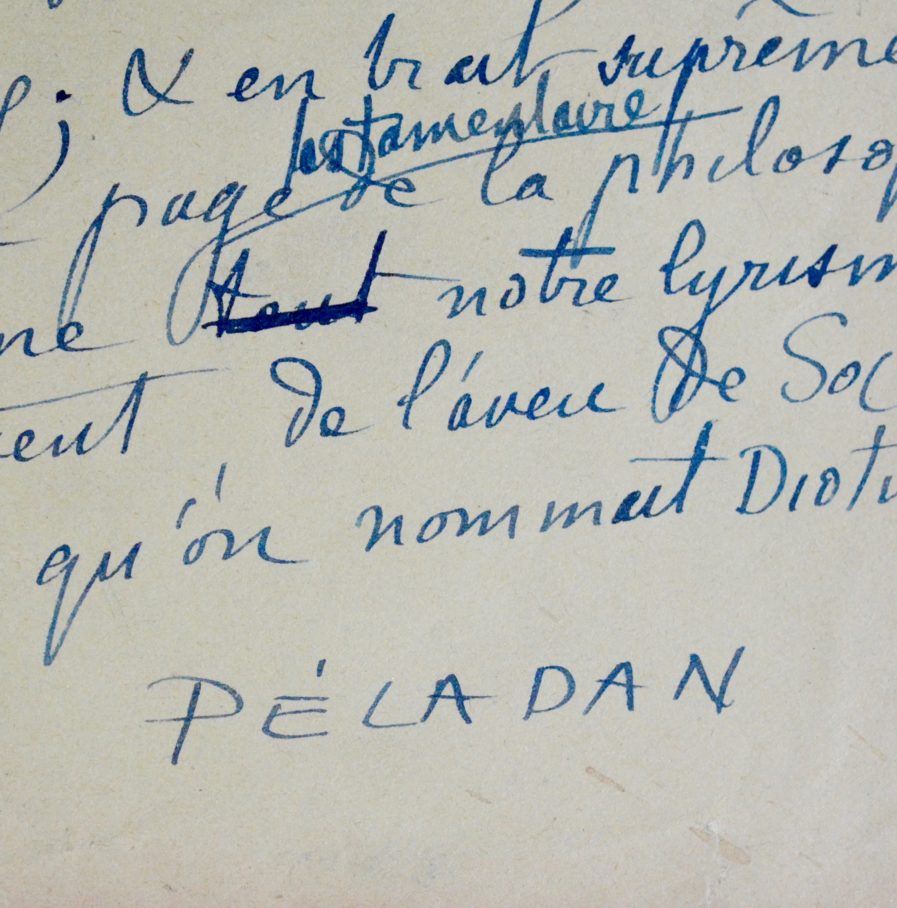 ; & en trait suprême
testamentaire
page de la philosop
ne tout notre lyrism
ent, de l'aveu de Soc
qu'on nommait Dioti
PÉLADAN